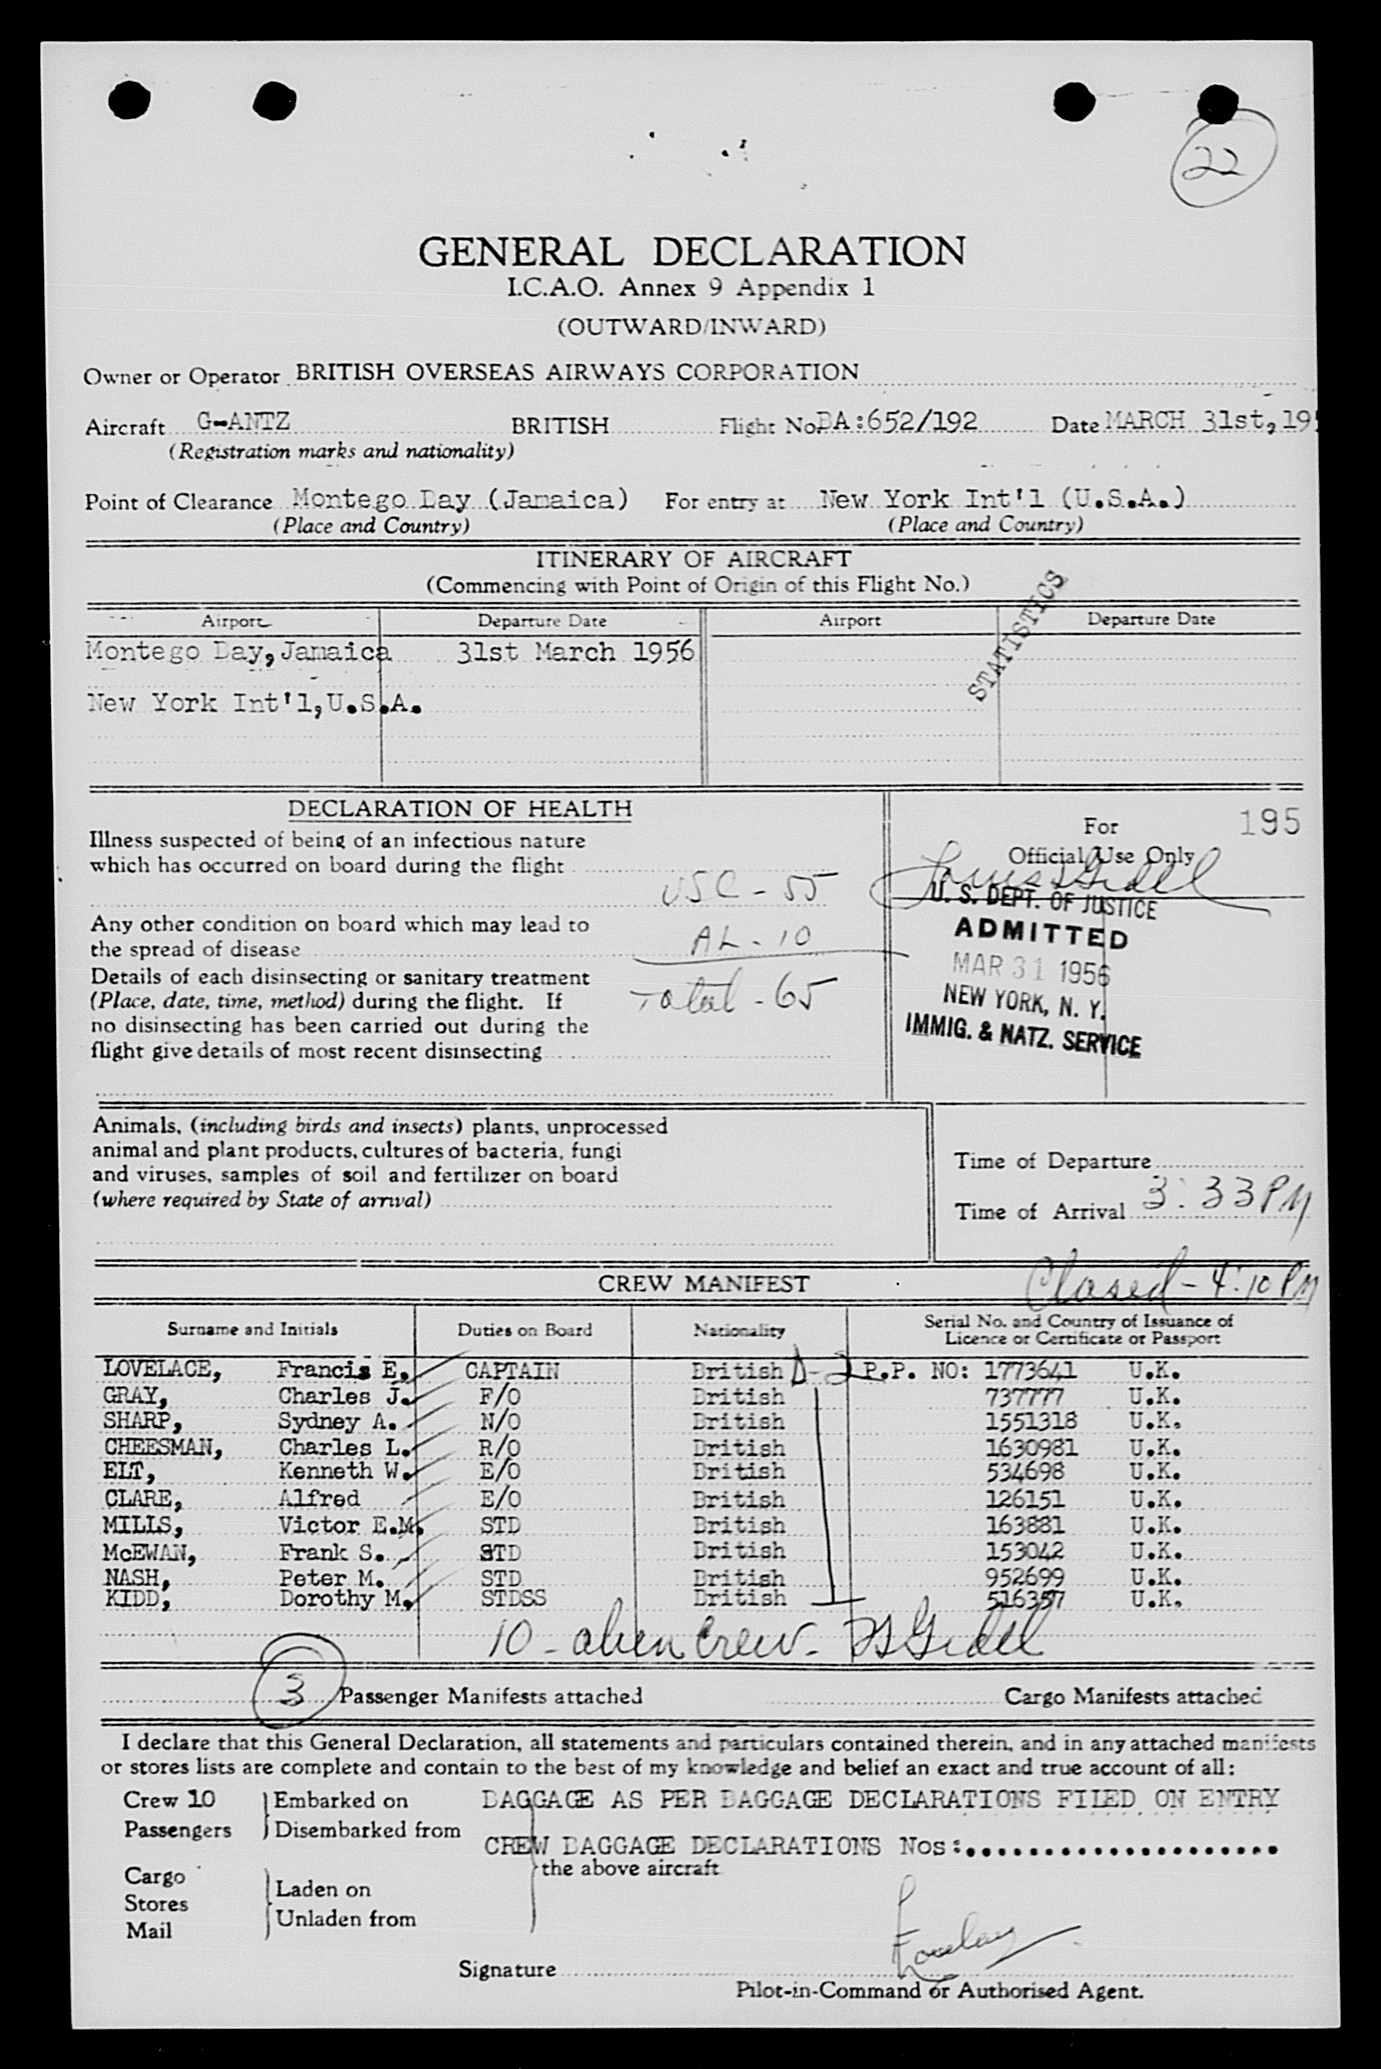 22
GENERAL DECLARATION
I.C.A.O. Annex 9 Appendix 1
(OUTWARD/INWARD)
Owner or Operator BRITISH OVERSEAS AIRWAYS CORPORATION
Aircraft G-ANTZ BRITISH Flight No. BA:652/192 Date MARCH 31st, 195
(Registration marks and nationality)
Point of Clearance Montego Bay (Jamaica) For entry at New York Int'l (U.S.A.)
(Place and Country) (Place and Country)
ITINERARY OF AIRCRAFT
(Commencing with Point of Origin of this Flight No.)
STATISTICS
Airport Departure Date Airport Departure Date
Montego Bay, Jamaica 31st March 1956
New York Int'l, U.S.A.
DECLARATION OF HEALTH
For 195
Illness suspected of being of an infectious nature
Official Use Only
which has occurred on board during the flight
USC - 55
U. S. DEPT. OF JUSTICE
Any other condition on board which may lead to
ADMITTED
the spread of disease
AL - 10
MAR 31 1956
Details of each disinsecting or sanitary treatment
Total - 65
NEW YORK, N. Y.
(Place, date, time, method) during the flight. If
IMMIG. & NATZ. SERVICE
no disinsecting has been carried out during the
flight give details of most recent disinsecting
Animals, (including birds and insects) plants, unprocessed
animal and plant products, cultures of bacteria, fungi
and viruses, samples of soil and fertilizer on board
(where required by State of arrival)
Time of Departure
Time of Arrival 3:33 PM
Closed - 4:10 PM
CREW MANIFEST
Surname and Initials Duties on Board Nationality Serial No. and Country of Issuance of
Licence or Certificate or Passport
LOVELACE, Francis E. CAPTAIN British D-2 P.P. NO: 1773641 U.K.
GRAY, Charles J. F/O British 737777 U.K.
SHARP, Sydney A. N/O British 1551318 U.K.
CHEESMAN, Charles L. R/O British 1630981 U.K.
ELT, Kenneth W. E/O British 534698 U.K.
CLARE, Alfred E/O British 126151 U.K.
MILLS, Victor E.M. STD British 163881 U.K.
McEWAN, Frank S. STD British 153042 U.K.
NASH, Peter M. STD British 952699 U.K.
KIDD, Dorothy M. STDSS British 516357 U.K.
10 - alien crew -
3 Passenger Manifests attached Cargo Manifests attached
I declare that this General Declaration, all statements and particulars contained therein, and in any attached manifests
or stores lists are complete and contain to the best of my knowledge and belief an exact and true account of all:
Crew 10 Embarked on BAGGAGE AS PER BAGGAGE DECLARATIONS FILED ON ENTRY
Passengers Disembarked from
CREW BAGGAGE DECLARATIONS Nos:....................
the above aircraft
Cargo
Stores Laden on
Mail Unladen from
Signature
Pilot-in-Command or Authorised Agent.